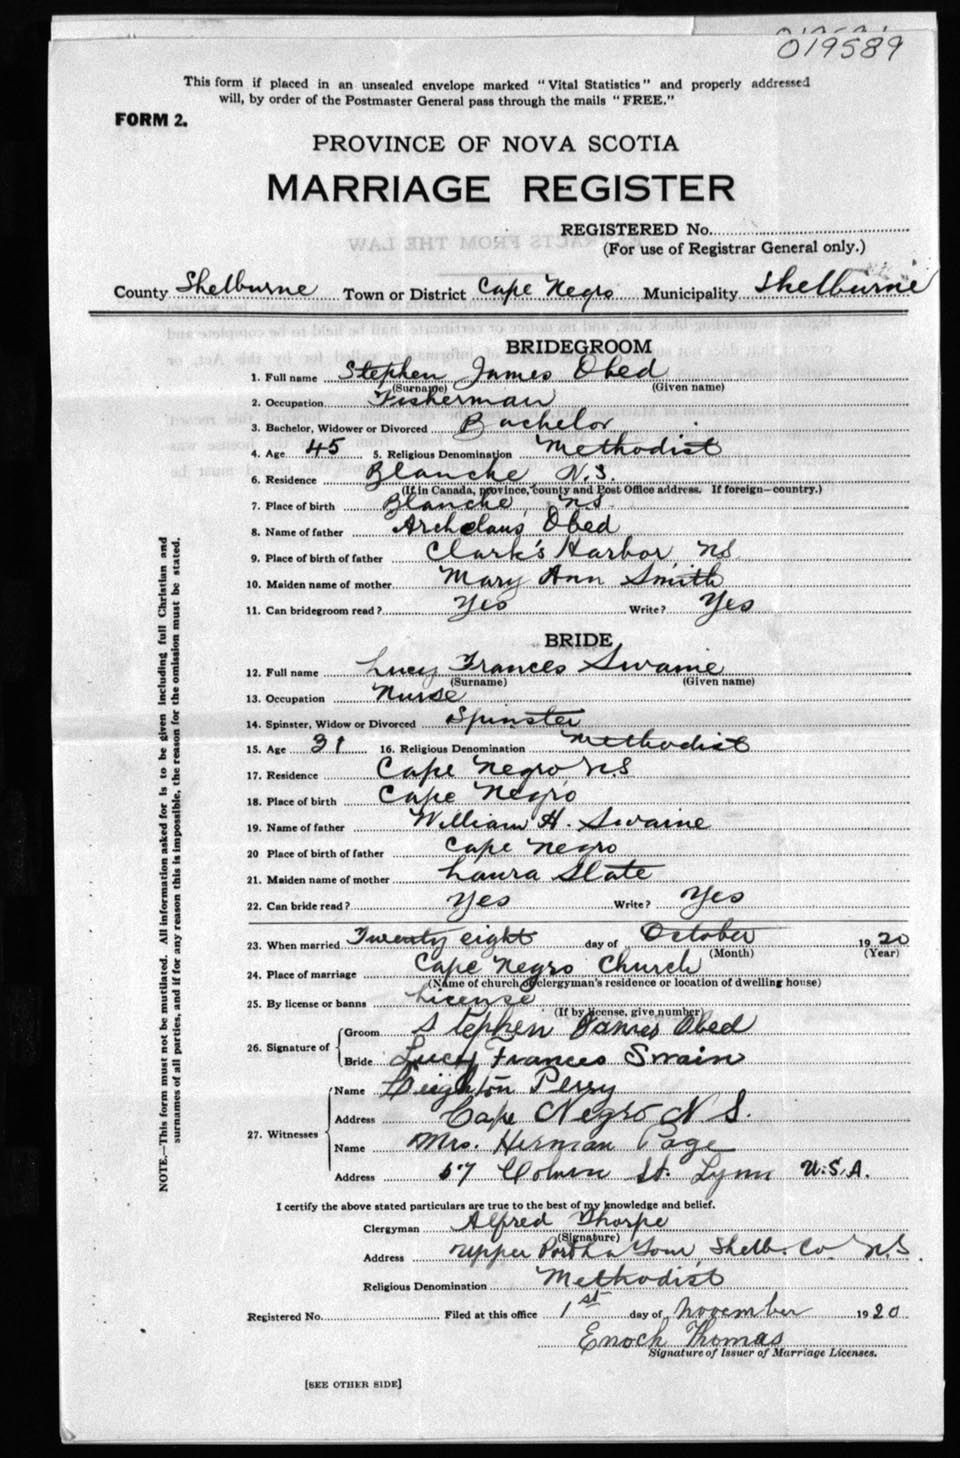 019589
This form if placed in an unsealed envelope marked "Vital Statistics" and properly addressed
will, by order of the Postmaster General pass through the mails "FREE."
FORM 2.
PROVINCE OF NOVA SCOTIA
MARRIAGE REGISTER
REGISTERED No.
(For use of Registrar General only.)
County Shelburne Town or District Cape Negro Municipality Shelburne
BRIDEGROOM
1. Full name Stephen James Obed
(Surname) (Given name)
2. Occupation Fisherman
3. Bachelor, Widower or Divorced Bachelor
4. Age 45 5. Religious Denomination Methodist
6. Residence Blanche N.S.
(If in Canada, province, county and Post Office address. If foreign—country.)
7. Place of birth Blanche, NS
8. Name of father Archelaus Obed
9. Place of birth of father Clark's Harbor, NS
10. Maiden name of mother Mary Ann Smith
11. Can bridegroom read? Yes Write? Yes
BRIDE
12. Full name Lucy Frances Swaine
(Surname) (Given name)
13. Occupation Nurse
14. Spinster, Widow or Divorced Spinster
15. Age 31 16. Religious Denomination Methodist
17. Residence Cape Negro N.S
18. Place of birth Cape Negro
19. Name of father William H. Swaine
20 Place of birth of father Cape Negro
21. Maiden name of mother Laura Slate
22. Can bride read? Yes Write? Yes
23. When married Twenty eight day of October 1920
(Month) (Year)
24. Place of marriage Cape Negro Church
(Name of church, clergyman's residence or location of dwelling house)
25. By license or banns License
(If by license, give number)
26. Signature of Groom Stephen James Obed
Bride Lucy Frances Swain
27. Witnesses Name Leighton Perry
Address Cape Negro N S.
Name Mrs. Herman Page
Address 57 St. Lynn U.S.A.
I certify the above stated particulars are true to the best of my knowledge and belief.
Clergyman Alfred Thorpe
(Signature)
Address Upper Port La Tour, Shelb. Co N.S.
Religious Denomination Methodist
Registered No. Filed at this office 1st day of November 1920
Enoch Thomas
Signature of Issuer of Marriage Licenses.
[SEE OTHER SIDE]
NOTE.—This form must not be mutilated. All information asked for is to be given including full Christian and
surnames of all parties, and if for any reason this is impossible, the reason for the omission must be stated.